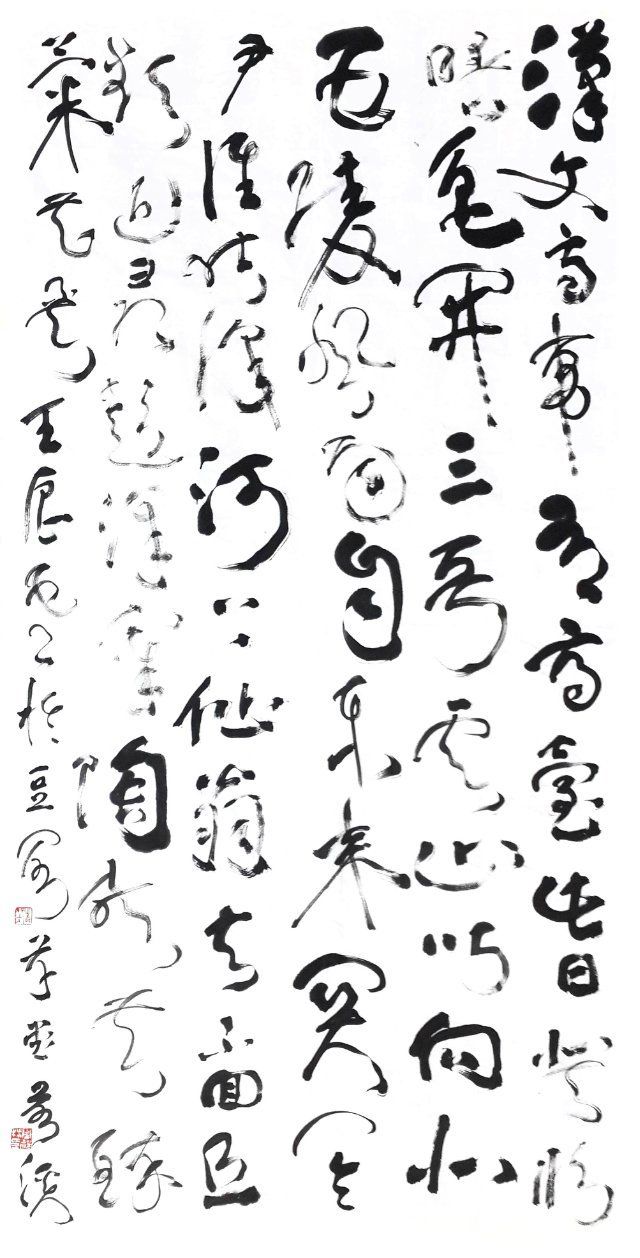 漢文皇帝有高臺此日登臨
曙色開三晉雲山皆向北
陵風雨自東來關門令
尹誰能識河上仙翁去不回且
欲近尋彭澤宰陶然共醉
菊花杯 王 於豆 草堂